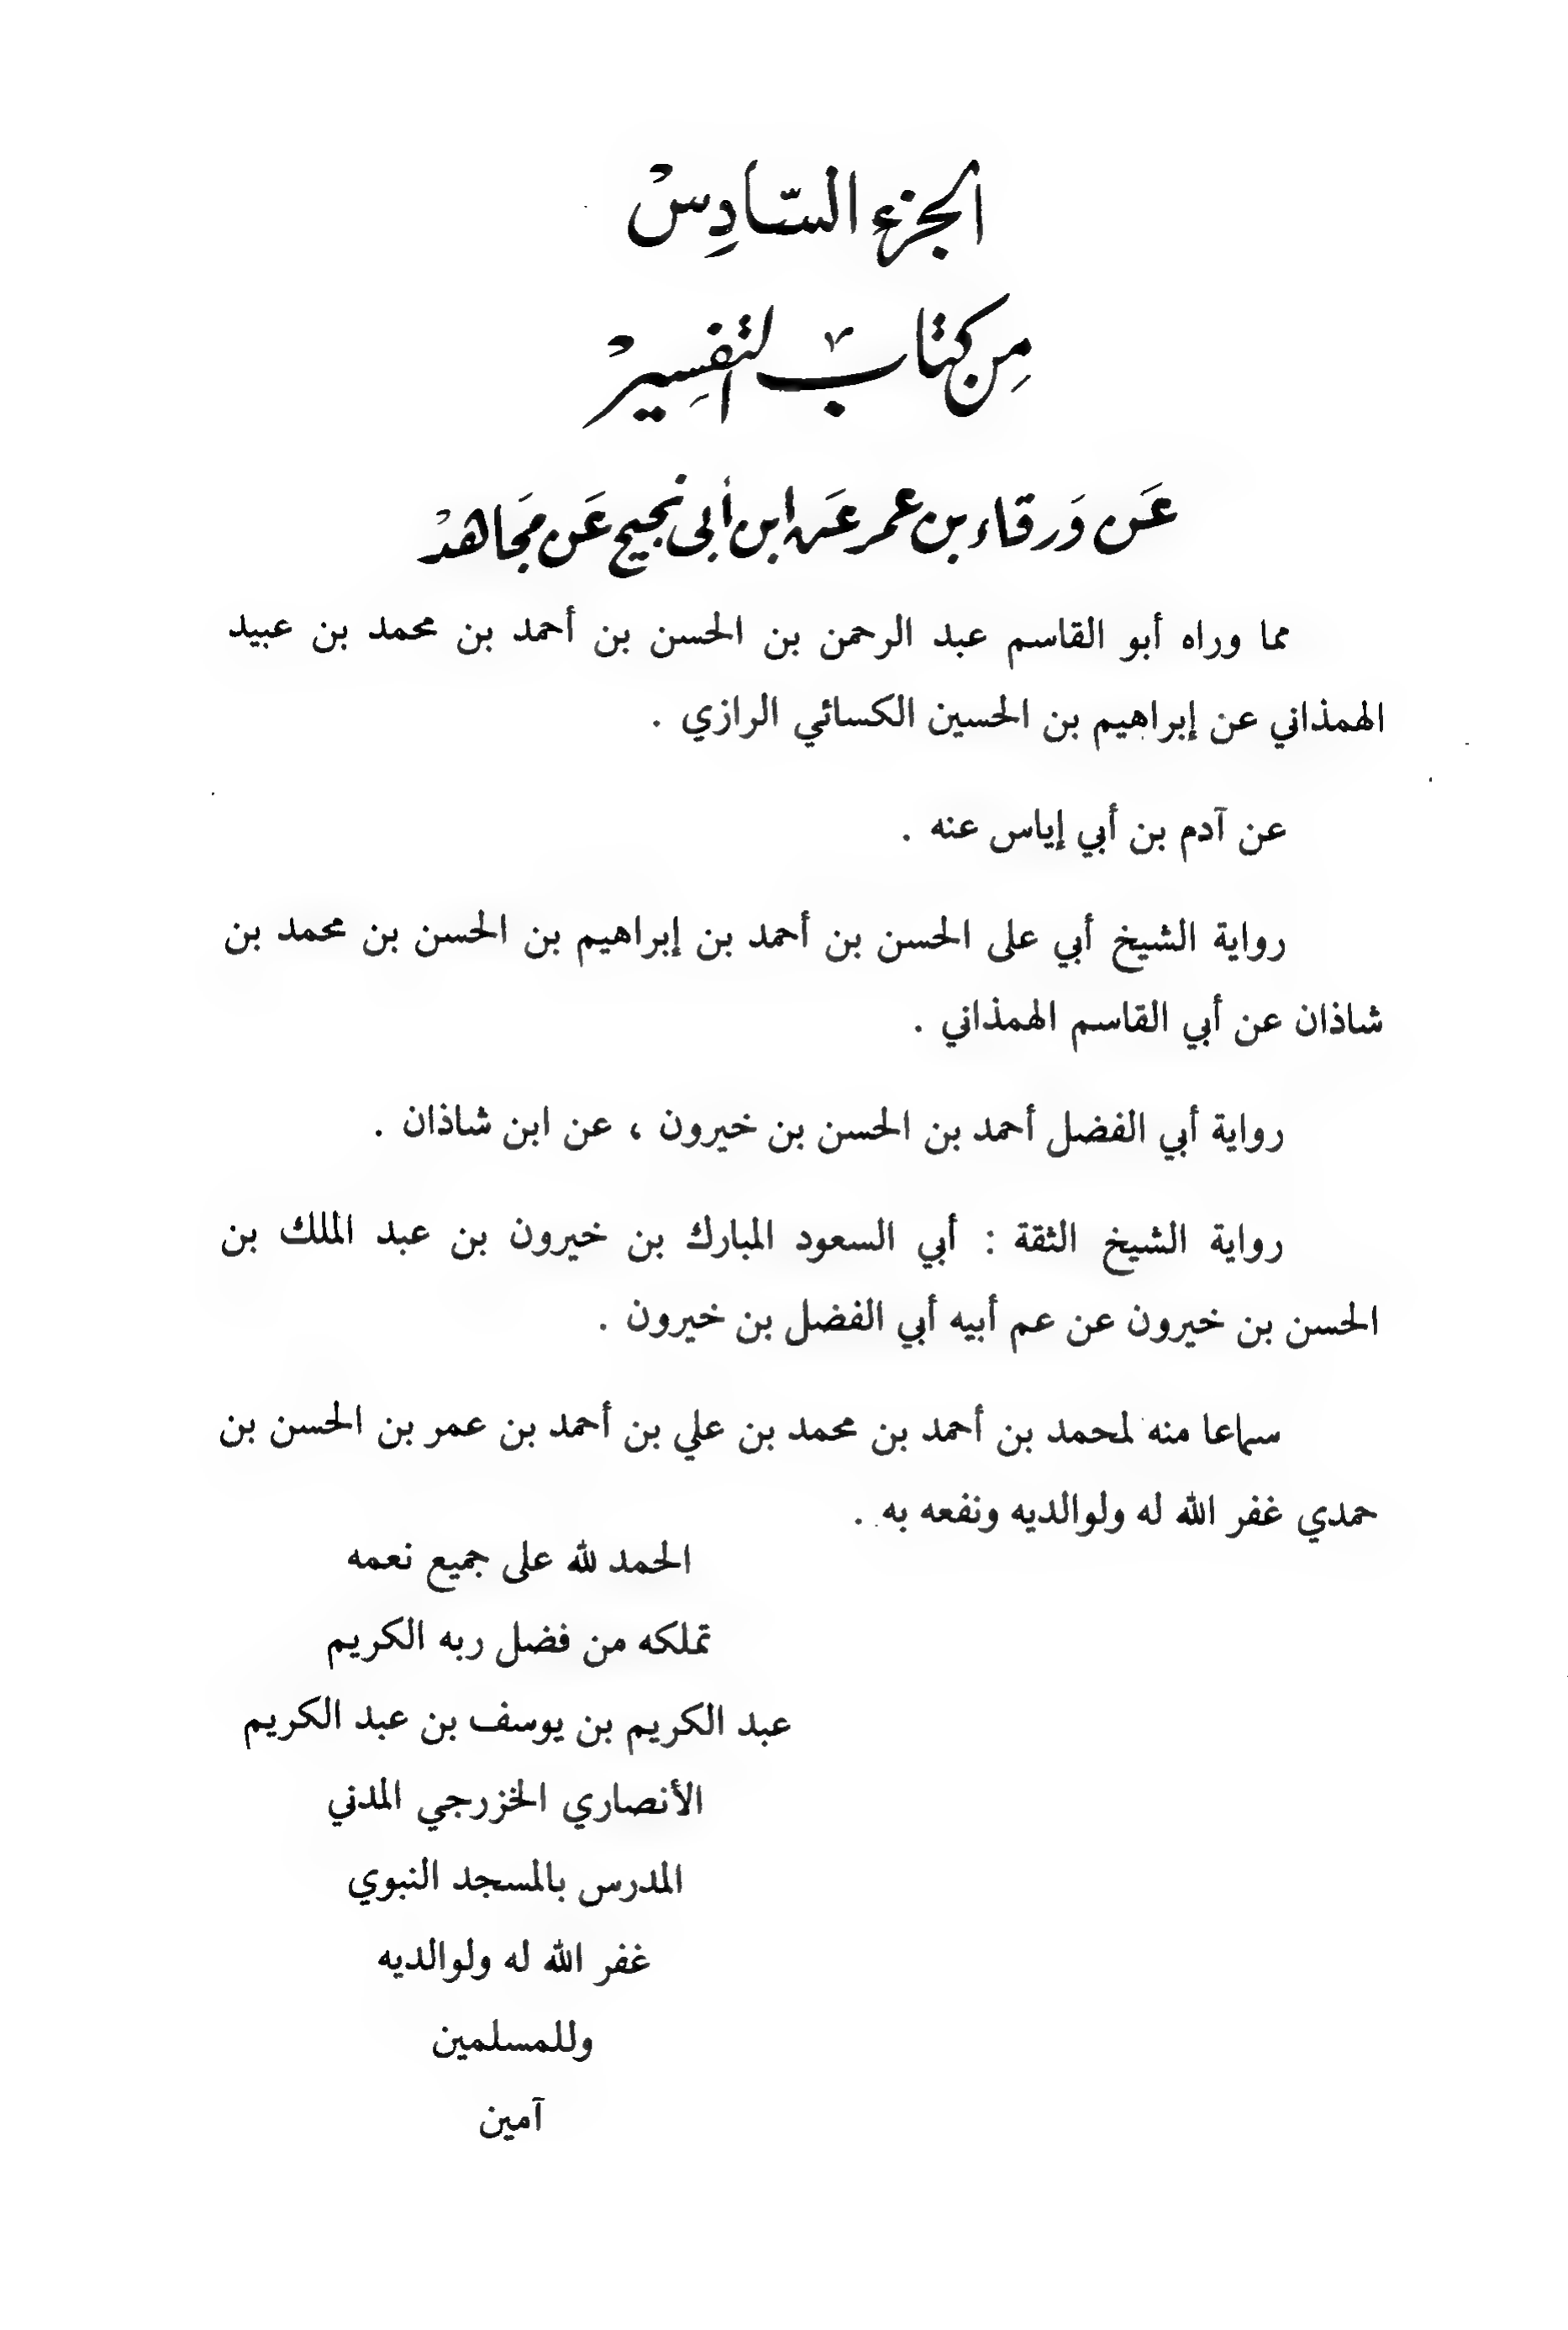 الجزء السّادِسْ
مِن كتاب التفسِيرْ
عَن وَرقاء بن عمر عَن ابن أبى نجيح عَن مجَاهدْ
مما وراه أبو القاسم عبد الرحمن بن الحسن بن أحمد بن محمد بن عبيد
الهمذاني عن إبراهيم بن الحسين الكسائي الرازي .
عن آدم بن أبي إياس عنه .
رواية الشيخ أبي على الحسن بن أحمد بن إبراهيم بن الحسن بن محمد بن
شاذان عن أبي القاسم الهمذاني .
رواية أبي الفضل أحمد بن الحسن بن خيرون ، عن ابن شاذان .
رواية الشيخ الثقة : أبي السعود المبارك بن خيرون بن عبد الملك بن
الحسن بن خيرون عن عم أبيه أبي الفضل بن خيرون .
سماعا منه لمحمد بن أحمد بن محمد بن علي بن أحمد بن عمر بن الحسن بن
حمدي غفر الله له ولوالديه ونفعه به .
الحمد لله على جميع نعمه
تملكه من فضل ربه الكريم
عبد الكريم بن يوسف بن عبد الكريم
الأنصاري الخزرجي المدني
المدرس بالمسجد النبوي
غفر الله له ولوالديه
وللمسلمين
آمين